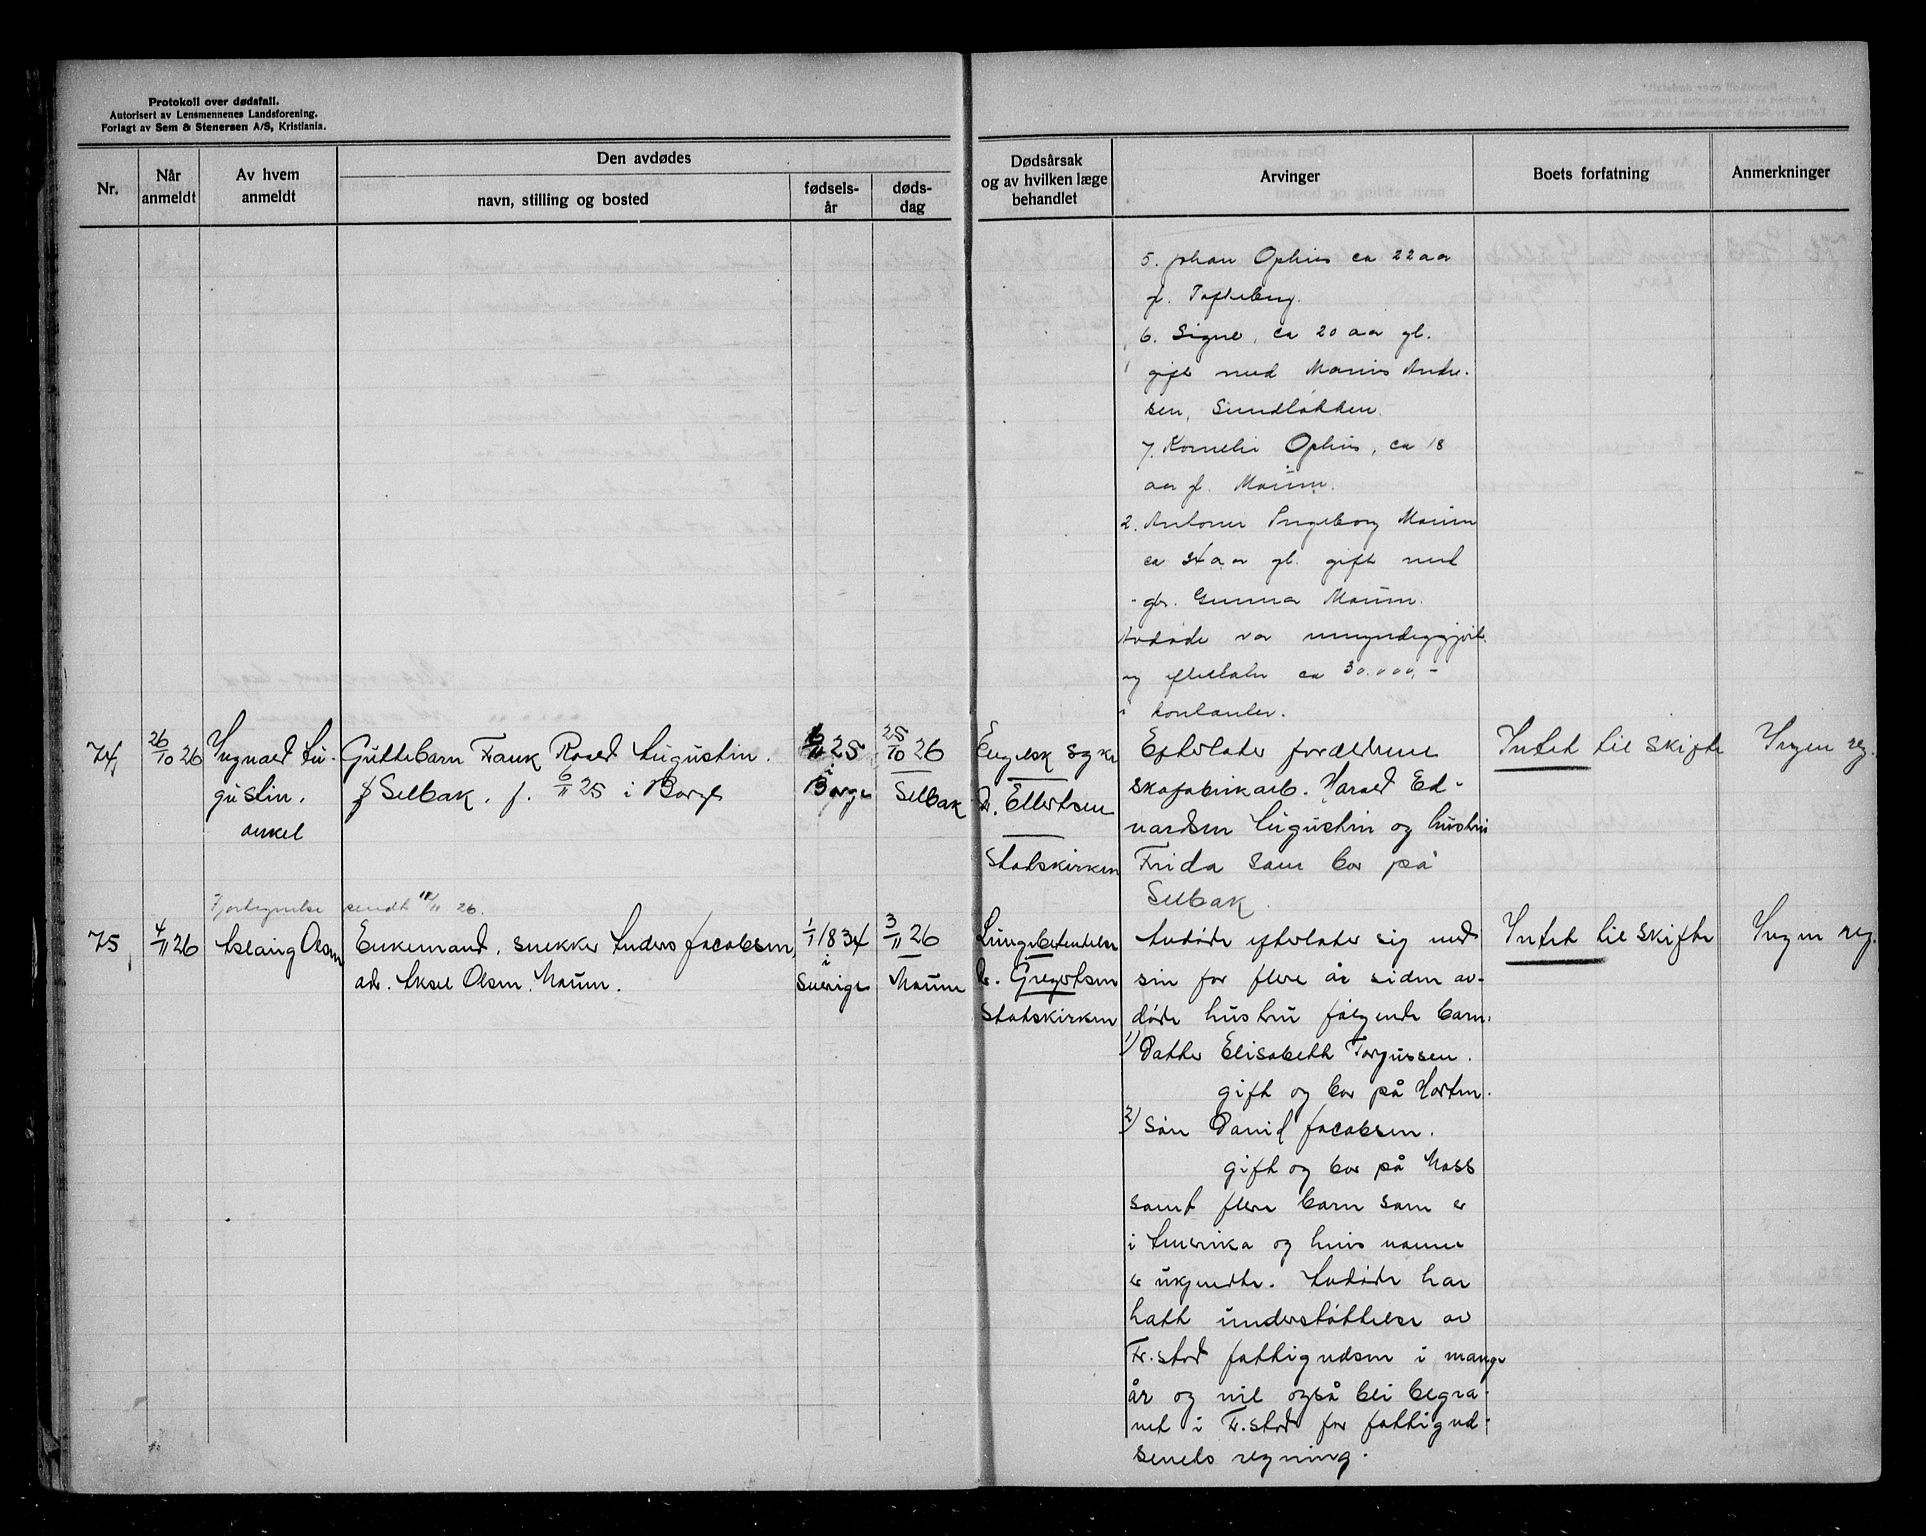 Protokoll over dødsfall.
Autorisert av Lensmennenes Landsforening.
Forlagt av Sem & Stenersen A/S, Kristiania.
Nr.
Når anmeldt
Av hvem anmeldt
Den avdødes
navn, stilling og bosted
fødsels-år
døds-dag
Dødsårsak og av hvilken læge behandlet
Arvinger
Boets forfatning
Anmerkninger
5. Johan Ophus ca 22 aa
gl. Tofteberg.
6. Signe, ca 20 aar gl.
gift med Marius Andre-
sen, Sundløkken.
7. Kornelie Ophus, ca 18
aar gl. Moum.
2. Antonie Ingeborg Moum
ca 34 aar gl. gift med
gbr. Gunnar Moum.
Avdøde var umyndiggjort
og efterlater ca 30.000,-
i kontanter.
74
26/10 26
Ingvald Au-
gustin.
onkel
Guttebarn Frank Roald Augustin.
Selbak. f. 6/11 25 i Borge
6/11 25
i
Borge
25/10 26
Selbak
Engelsk syke
Dr. Ellertsen
Statskirken
Efterlater forældrene
skofabrikarb. Harald Ed-
vardsen Augustin og hustru
Frida som bor på
Selbak.
Intet til skifte
Ingen reg.
Fjorbegnelse sendt 12/11 26.
75
4/11 26
Aslaug Olsen
Enkemand, snekker Anders Jacobsen,
adr. Aksel Olsen, Moum.
1/1 1834
i
Sverige
3/11 26
Moum
Lungebetendelse
Dr. Gregertsen
Statskirken
Avdøde efterlater sig med
sin for flere år siden av-
døde hustru følgende barn.
1) Datter Elisabeth Torgussen.
gift og bor på Horten.
2) Søn David Jacobsen.
gift og bor på Moss
samt flere barn som er
i Amerika og hvis navne
er ukjendte. Avdøde har
hatt understøttelse av
Fr.stad fattigvæsen i mange
år og vil også bli begra-
vet i Fr.stad for fattigvæ-
senets regning.
Intet til skifte
Ingen reg.